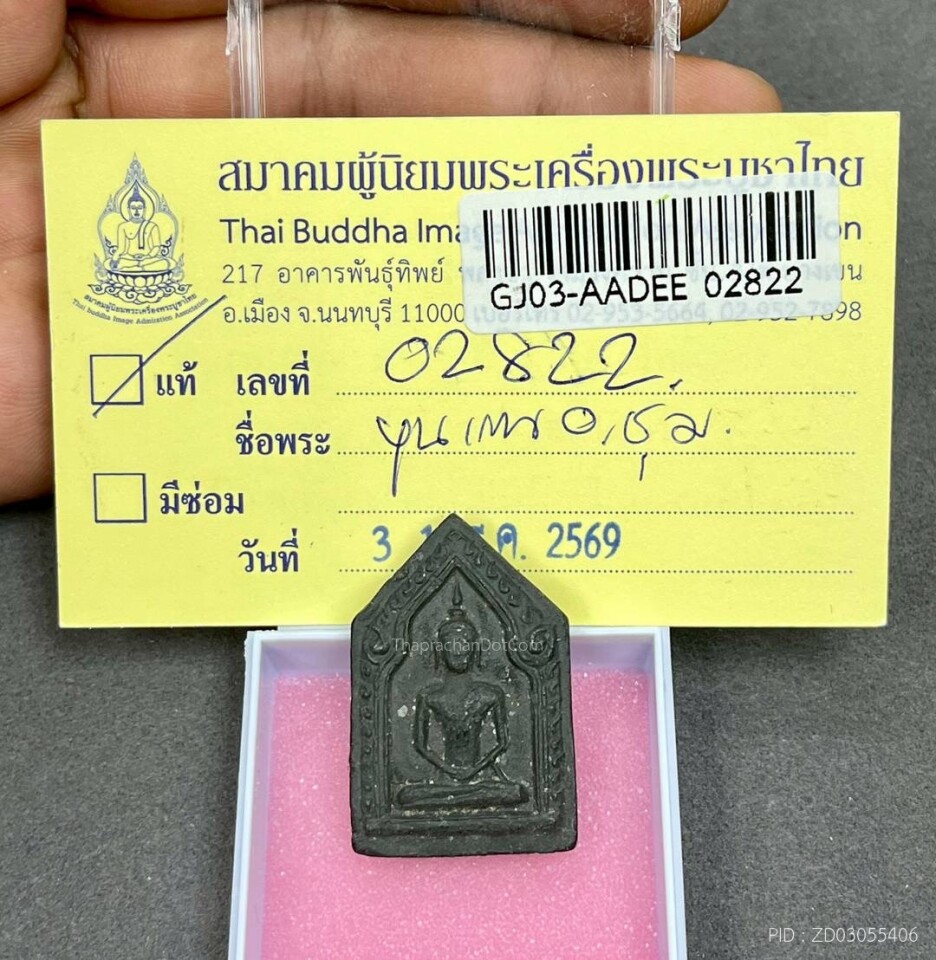 สมาคมผู้นิยมพระเครื่องพระบูชาไทย
Thai Buddha Image
217 อาคารพันธุ์ทิพย์
อ.เมือง จ.นนทบุรี 11000 เบอร์โทร 02-953-5664, 02-952-7898
GJ03-AADEE 02822
สมาคมผู้นิยมพระเครื่องพระบูชาไทย
Thai Buddha Image Admiration Association
แท้ เลขที่ 02822
ชื่อพระ ขุนแผน อ.ชุม
มีซ่อม
วันที่ 3 มี.ค. 2569
ThaprachanDotCom
PID : ZD03055406